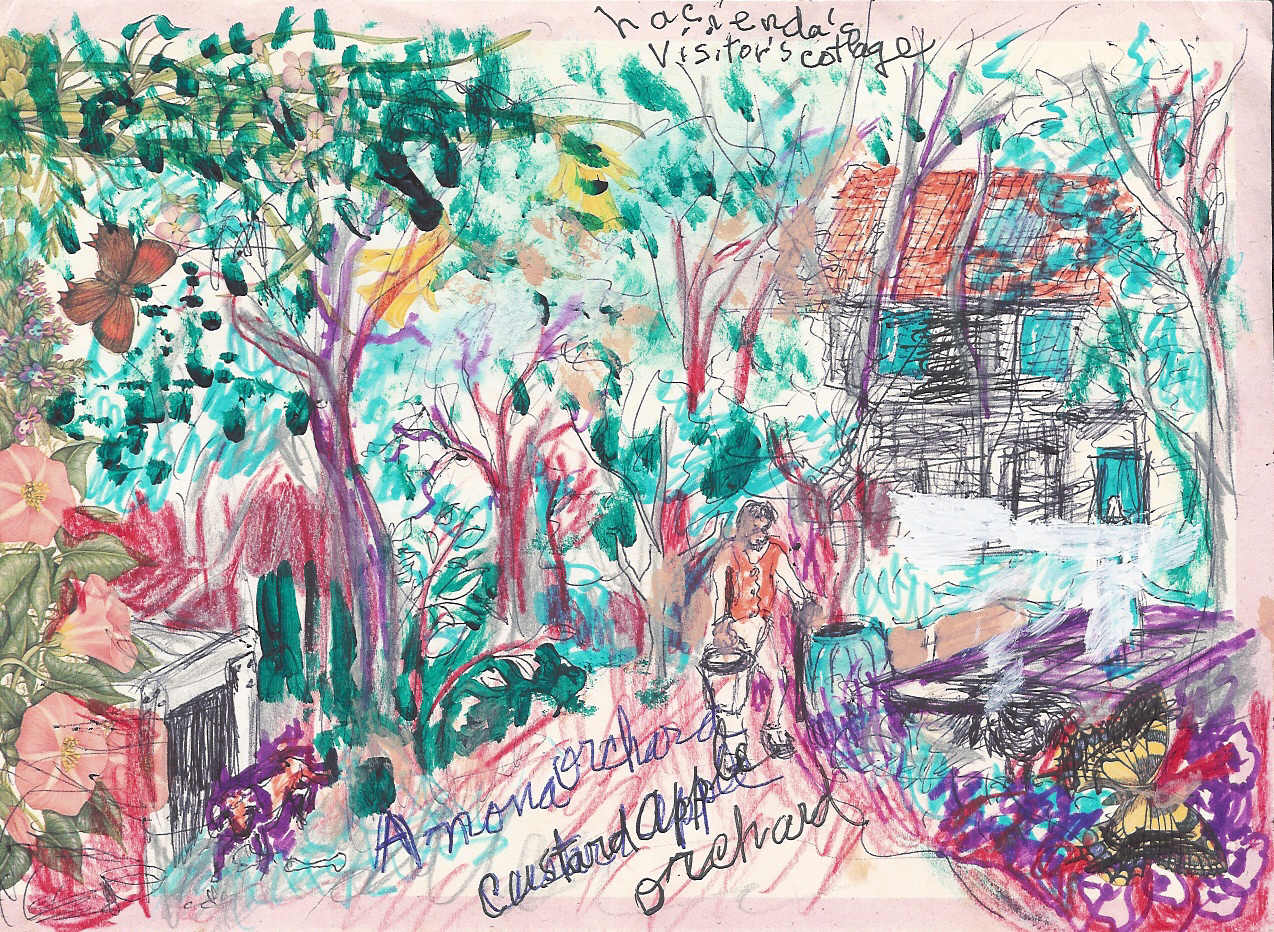 hacienda's
visitor's cottage
Anona orchard
custard apple
orchard